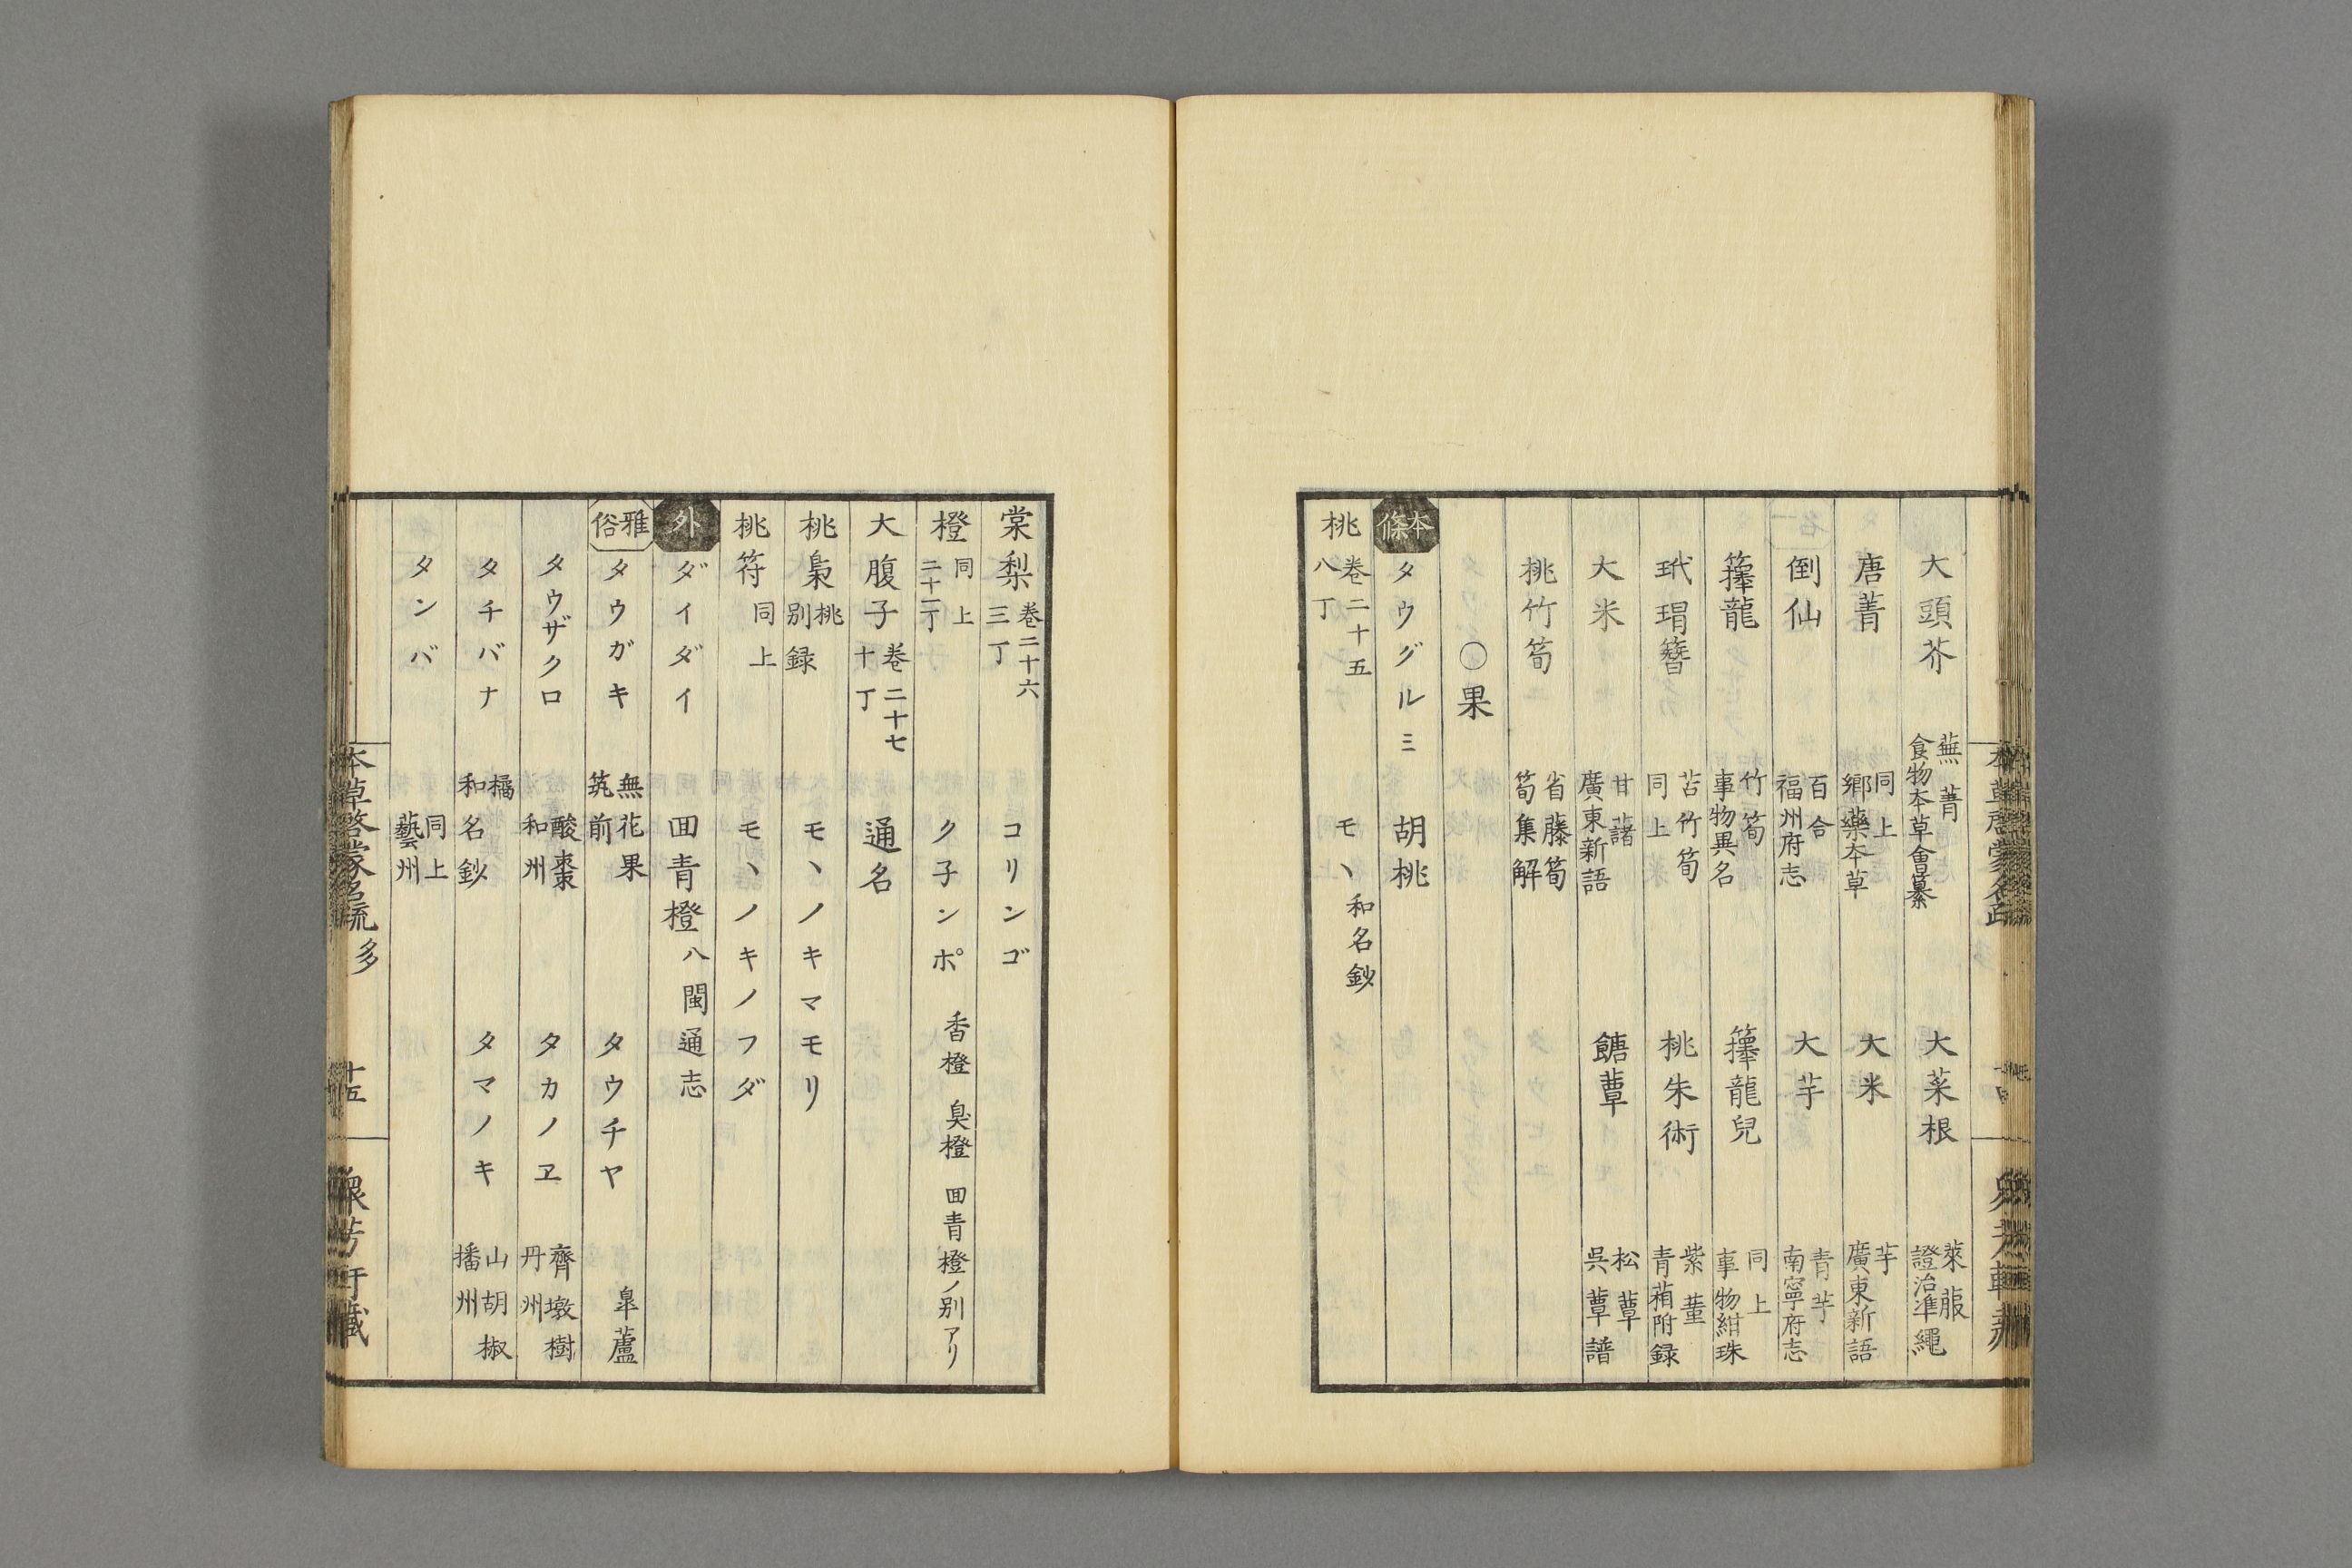 大頭芥 蕪菁 食物本草會纂 大菜根 萊菔 證治準繩
唐菁 同上 鄉藥本草 大米 芋 廣東新語
倒仙 百合 福州府志 大芋 青芋 南寧府志
籜龍 竹筍 事物異名 籜龍兒 同上 事物紺珠
玳瑁簪 苦竹筍 同上 桃朱術 紫菫 青葙附録
大米 甘藷 廣東新語 餹蕈 松蕈 呉蕈譜
桃竹筍 省藤筍 筍集解
〇果
本條 タウグルミ 胡桃
桃 卷二十五 八丁 モヽ 和名鈔
棠梨 卷二十六 三丁 コリンゴ
橙 同上 二十二丁 ク子ンポ 香橙 臭橙 回青橙ノ別アリ
大腹子 卷二十七 十丁 通名
桃梟 桃 別録 モヽノキマモリ
桃符 同上 モヽノキノフダ
外 ダイダイ 回青橙 八閩通志
雅俗 タウガキ 無花果 筑前 タウチヤ 皐蘆
タウザクロ 酸棗 和州 タカノヱ 齊墩樹 丹州
タチバナ 橘 和名鈔 タマノキ 山胡椒 播州
タンバ 同上 藝州
本草啓蒙名疏 多 十五